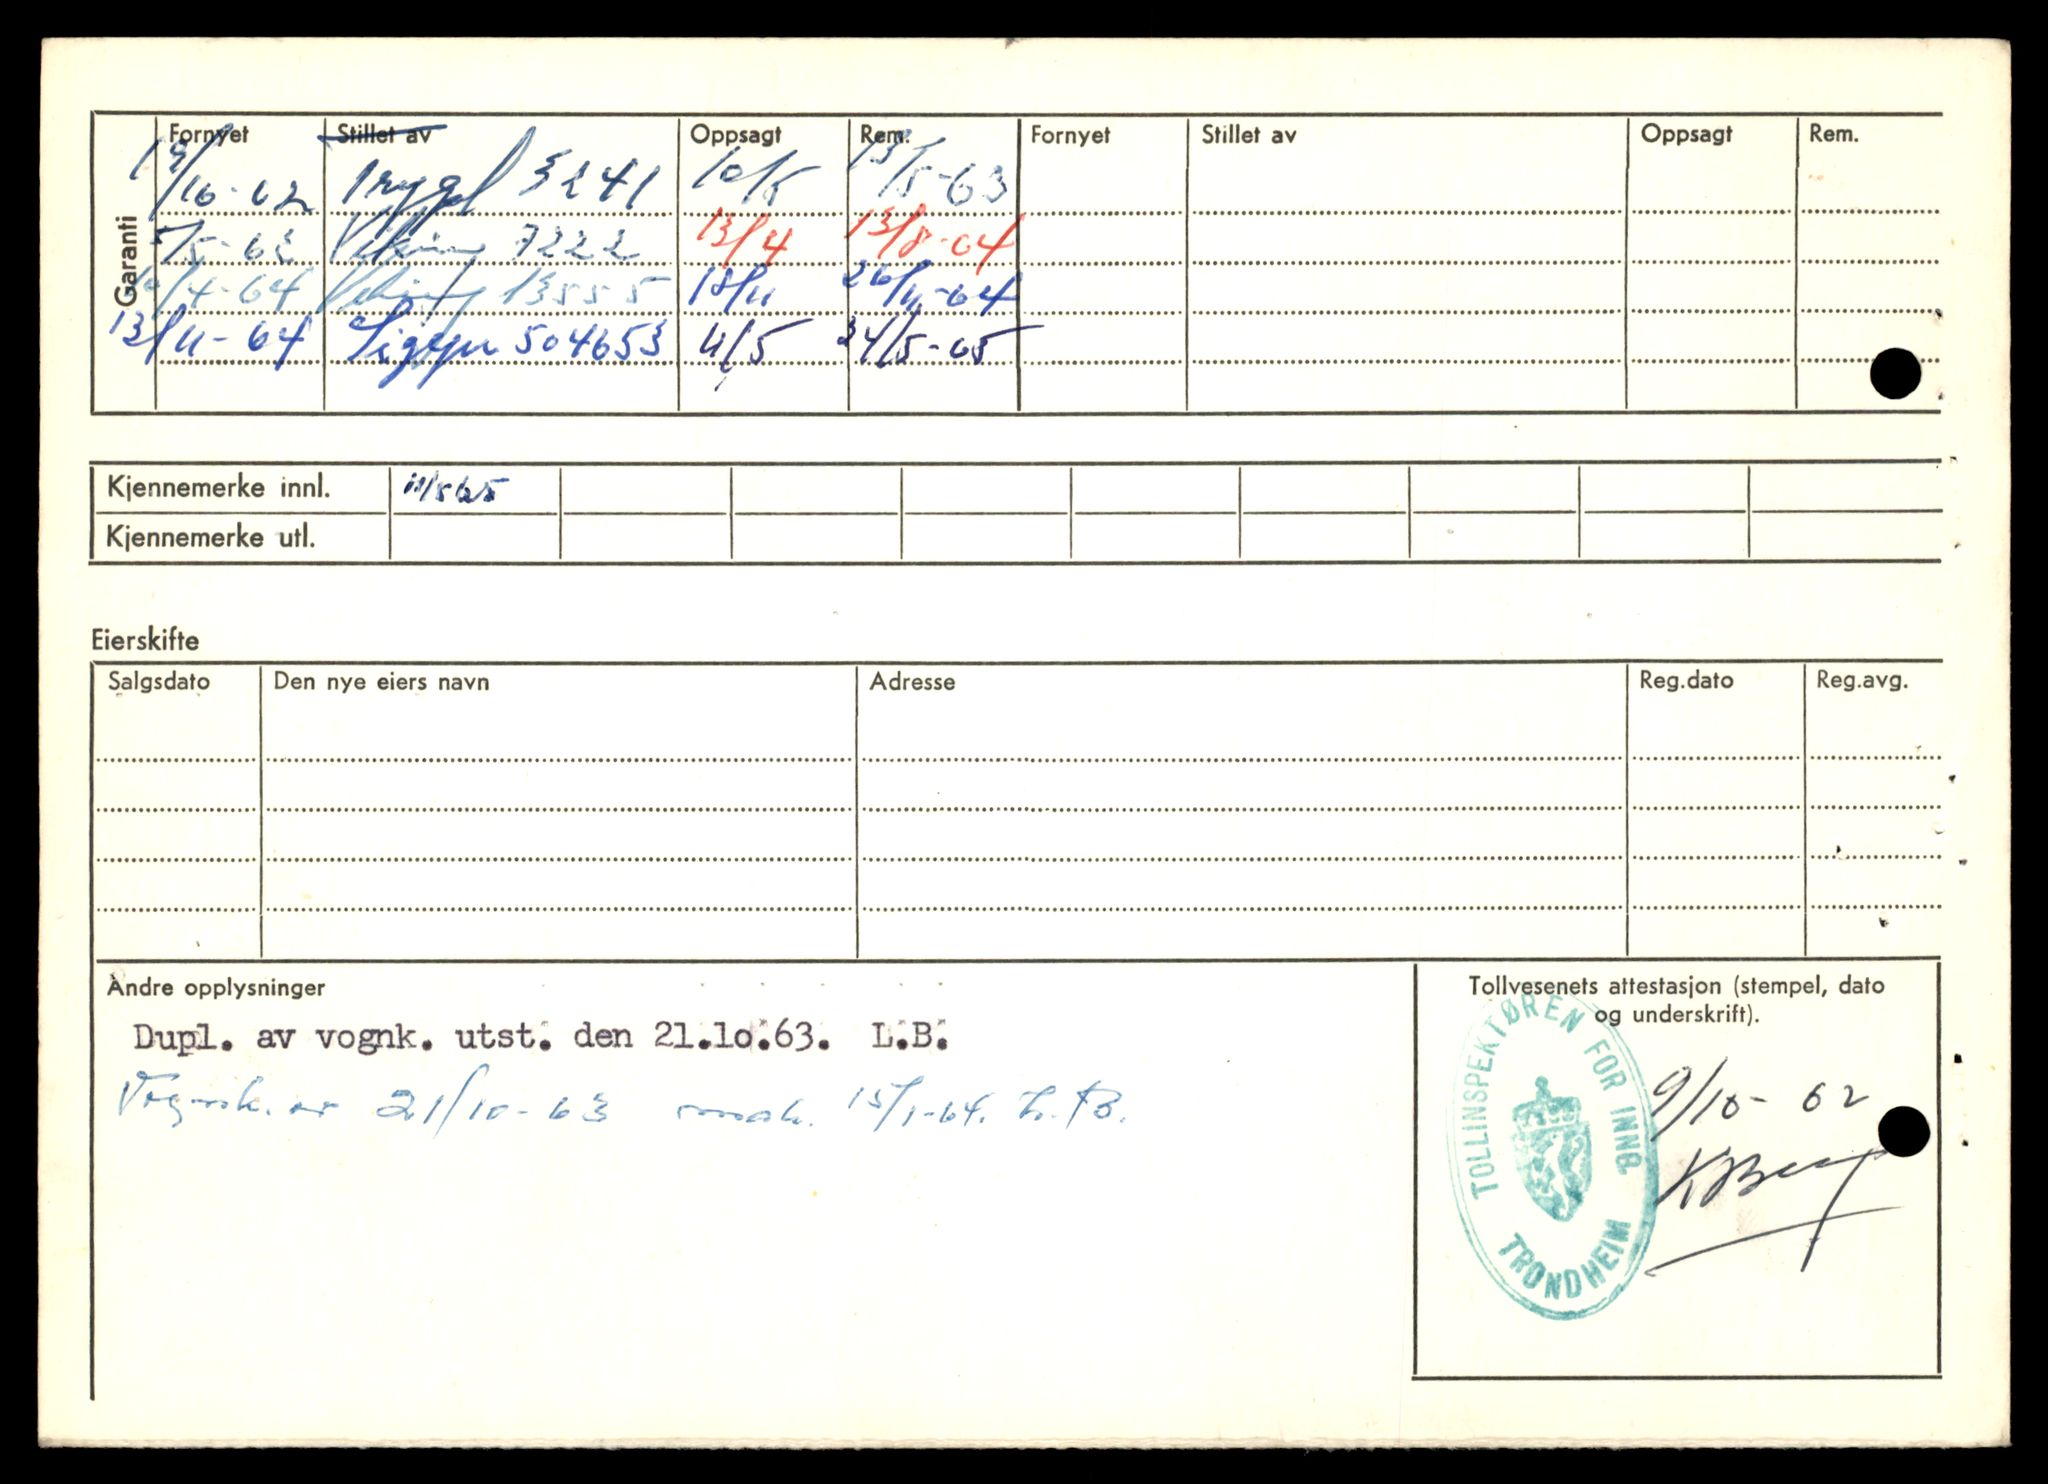 Garanti
Fornyet Stillet av Oppsagt Rem. Fornyet Stillet av Oppsagt Rem.
/10-62 Trygd 3241 10/5 13/5-63
5/5-63 Viking 7222 13/4 13/8-64
10/4-64 Viking 13555 18/11 26/11-64
13/11-64 504653 11/5 24/5-65
Kjennemerke innl. 11/5 65
Kjennemerke utl.
Eierskifte
Salgsdato Den nye eiers navn Adresse Reg.dato Reg.avg.
Andre opplysninger
Dupl. av vognk. utst. den 21.1o.63. L.B.
Vognk. av 21/10-63 mak. 15/1-64. L.B.
Tollvesenets attestasjon (stempel, dato
og underskrift).
TOLLINSPEKTØREN FOR INNB.
TRONDHEIM
9/10-62